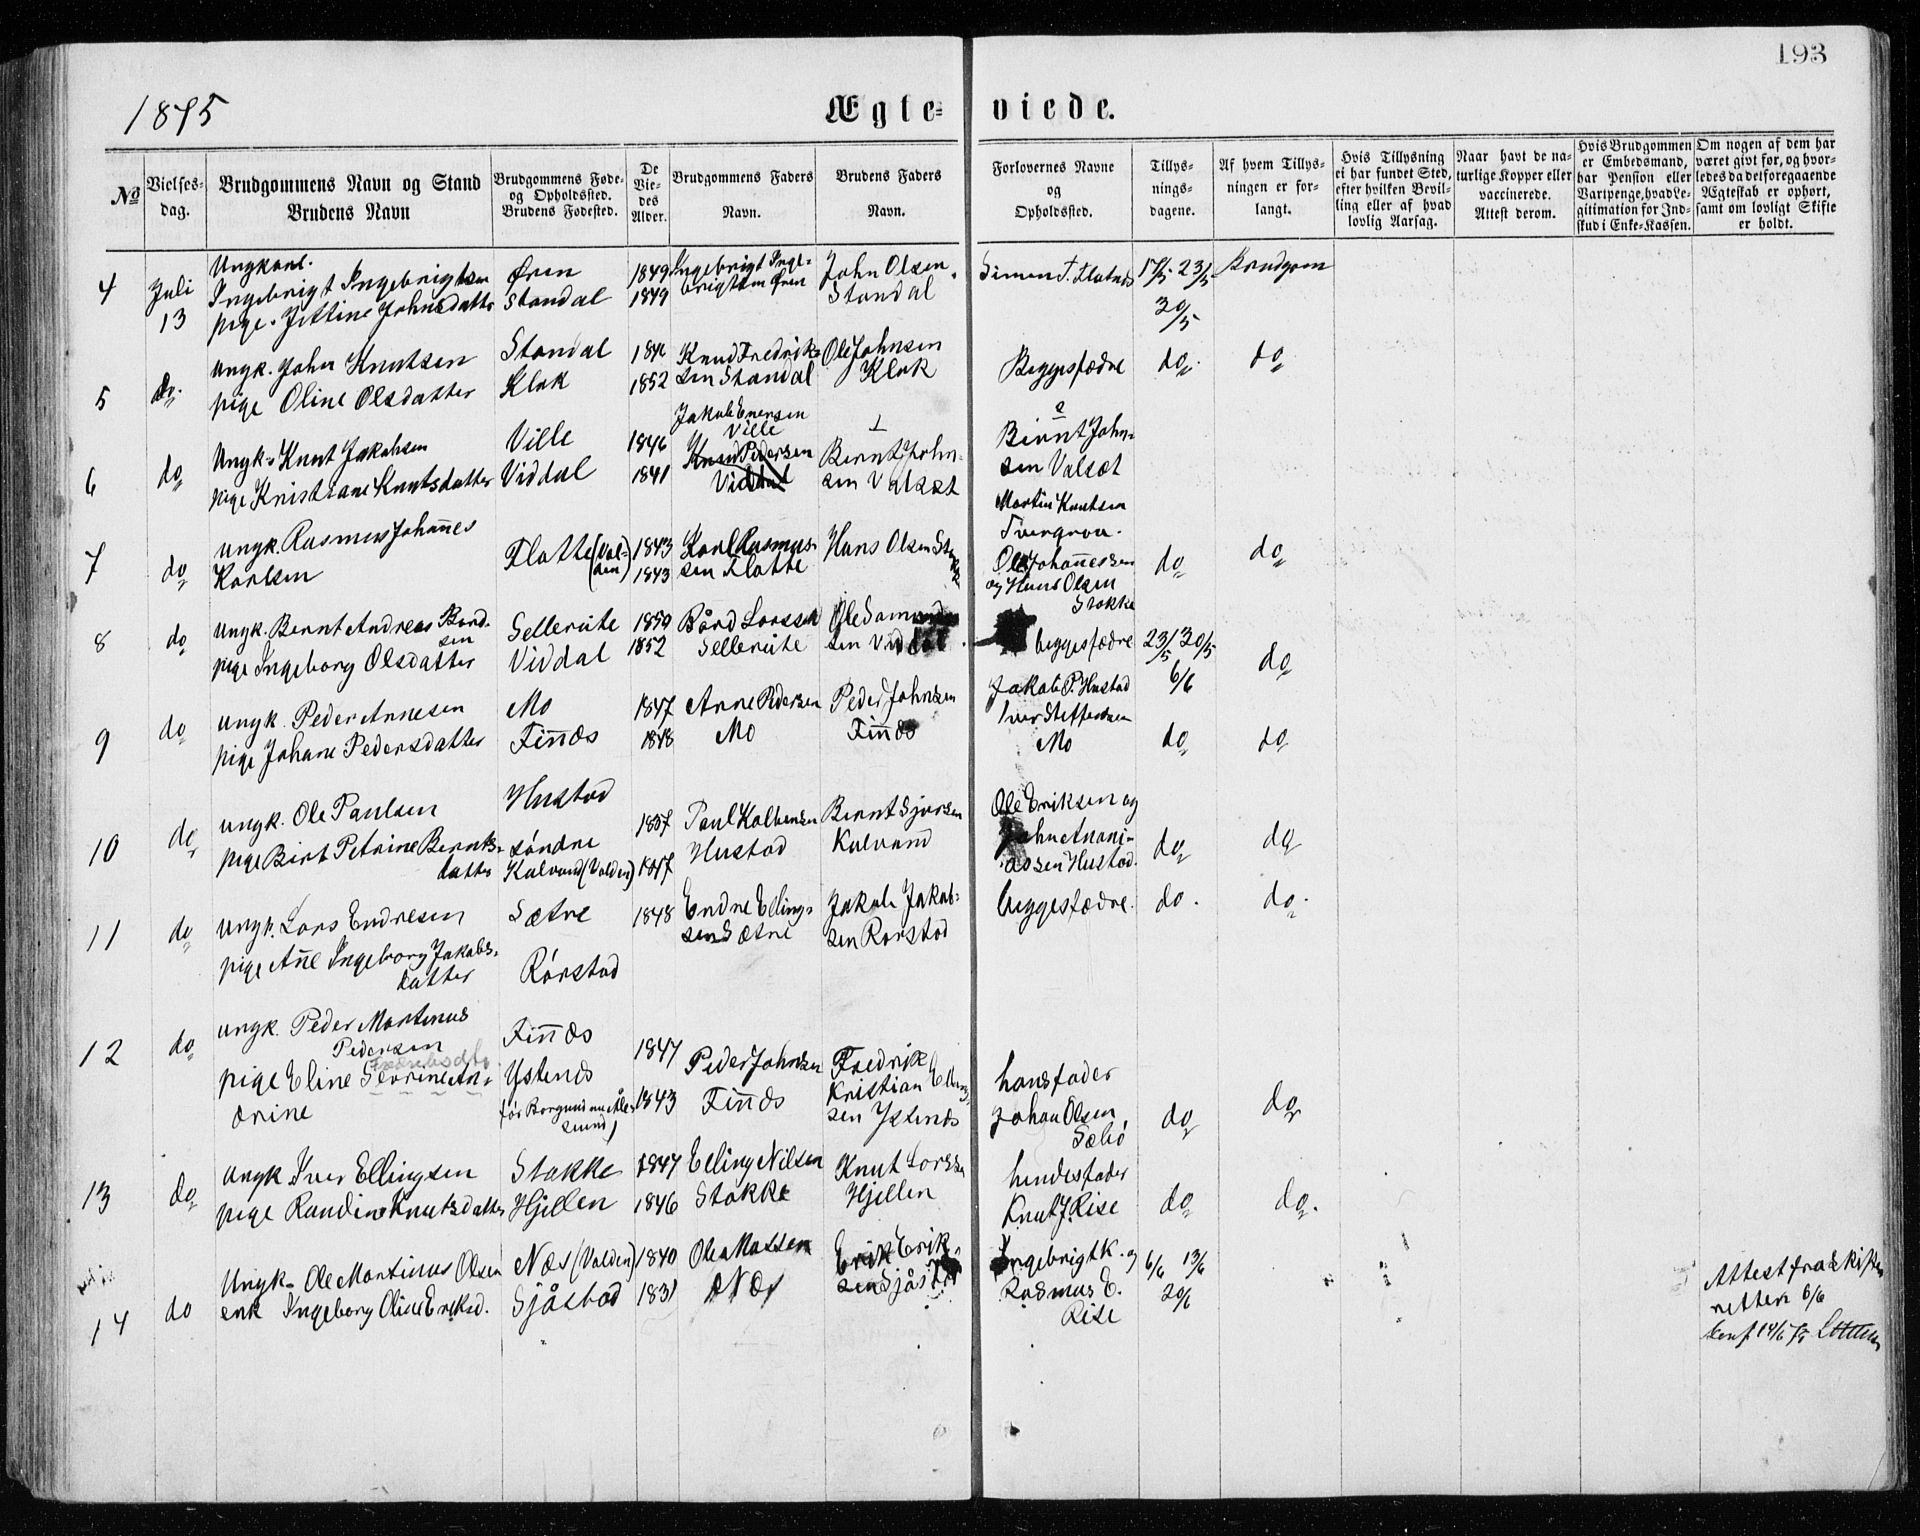 193
1875
Ægte= viede.
No
Vielses-
dag.
Brudgommens Navn og Stand
Brudens Navn
Brudgommens Føde-
og Opholdssted.
Brudens Fødested.
De
Vie-
des
Alder.
Brudgommens Faders
Navn.
Brudens Faders
Navn.
Forlovernes Navne
og
Opholdssted.
Tillys-
nings-
dagene.
Af hvem Tillys-
ningen er for-
langt.
Hvis Tillysning
ei har fundet Sted,
efter hvilken Bevil-
ling eller af hvad
lovlig Aarsag.
Naar havt de na-
turlige Kopper eller
vaccinerede.
Attest derom.
Hvis Brudgommen
er Embedsmand,
har Pension eller
Vartpenge, hvad Le-
gitimation for Ind-
skud i Enke-Kassen.
Om nogen af dem har
været givt før, og hvor-
ledes da det foregaaende
Ægteskab er ophørt,
samt om lovligt Skifte
er holdt.
4
Juli
13
Ungkarl.
Ingebrigt Ingebrigtsen
pige. Jettine Johnsdatter
Øren
Standal
1849
1849
Ingebrigt Inge-
brigtsen Øren
John Olsen
Standal
Simen T. Flatnes
17/5 23/5
30/5
Brudgom
5
do
ungk. John Knutsen
pige Oline Olsdatter
Standal
Klok
1852
Knud Fredrik-
sen Standal
Ole Johnsen
Klok
Beggesfædre
do
do
6
do
Ungk. Knut Jakobsen
pige Kristiane Knutsdatter
Ville
Viddal
1846
1841
Jakob Enersen
Ville
Knud Pedersen
Viddal
Bernt John-
sen Valsæt
Bernt John-
sen Valsæt
Martin Knutsen
7
do
ungk. Rasmus Johannes
Karlsen
Flatte (Vol-
den)
1843
1843
Karl Rasmus-
sen Flatte
Hans Olsen
Ole Johannessen
og Hans Olsen
Stokke
do
do
8
do
ungk. Bernt Andreas Bård-
sen
pige Ingeborg Olsdatter
Sellereite
Viddal
1850
1852
Bård Larssen
Sellereite
beggesfædre
23/5 30/5
6/6
do
9
do
ungk. Peder Arnesen
pige Johane Pedersdatter
Mo
Finnæs
1847
1848
Arne Pedersen
Mo
Peder Johnsen
Finnæs
Jakob P. Hustad
Iver Steffensen
Mo
do
do
10
do
ungk. Ole Paulsen
pige Birt Petrine Bernts-
datter
Hustad
søndre
Kalvand (Volden)
1847
Paul Kolbensen
Hustad
Bernt Sjursen
Kalvand
Ole Eriksen og
John Anani-
assen Hustad
do
do
11
do
ungk. Lars Endresen
pige Anne Ingeborg Jakobs-
datter
Sætre
Rørstad
1848
Endre Elling-
sen Sætre
Jakob Jakob-
sen Rorstad
beggesfædre.
do.
do.
12
do
ungk. Peder Martinus
Pedersen
pige Eline Severine An-
drine
Finnæs
Ystenes
1847
1843
Peder Johnsen
Finnæs
Fredrik
Kristian Elling-
sen Ystenes
hansfader
Johan Olsen
Sæbø
do
do
13
do
ungk Iver Ellingsen
pige Randine Knutsdatter
Stokke
Hjellen
1847
1846
Elling Nilsen
Stokke
Knut Larssen
Hjellen
hendesfader
Knut J. Rise
do
do.
14
do
Ungk. Ole Martinus Olsen
enk Ingeborg Oline Eriksd.
Næs (Volden)
Sjåstad
1840
1831
Ole Matsen
Næs
Erik Erik-
sen Sjåstad
Ingebrigt K. og
Rasmus E.
Rise
6/6 13/6
20/6
Attest fra Skifte
retten 6/6